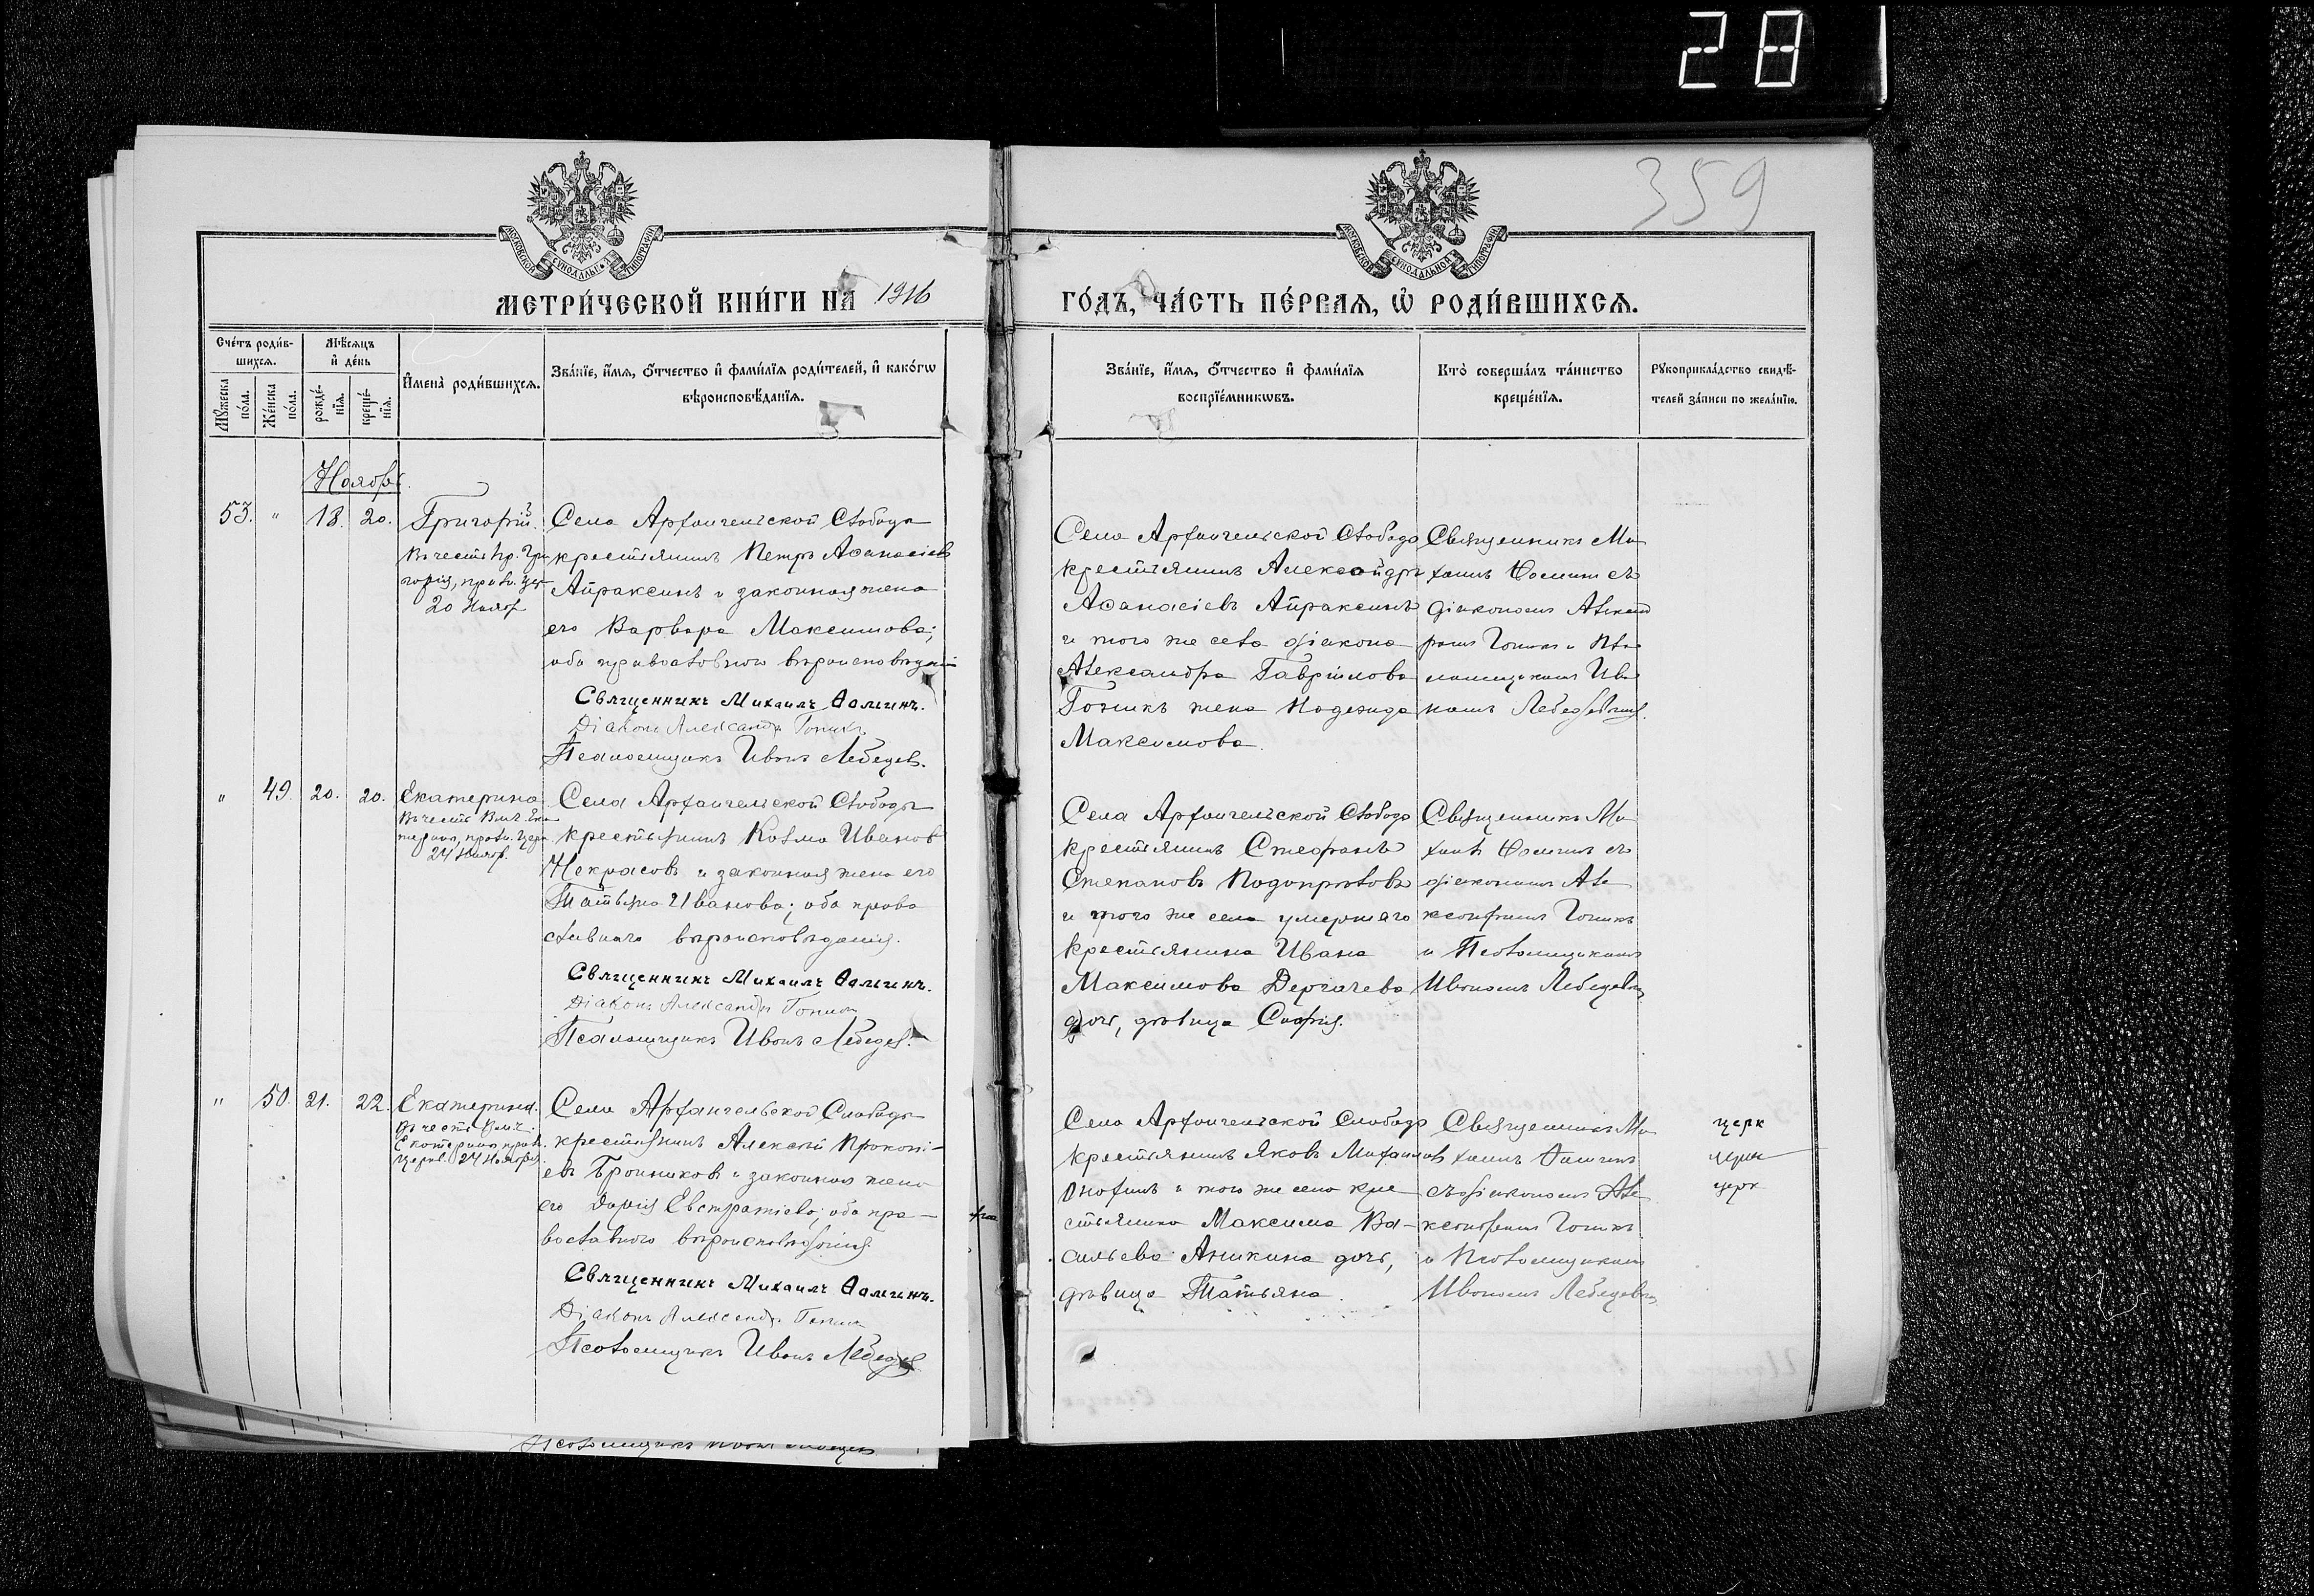 28
359
МОСКОВСКОЙ СѴНОДАЛЬНОЙ ТИПОГРАФІИ
МОСКОВСКОЙ СѴНОДАЛЬНОЙ ТИПОГРАФІИ
МЕТРИ́ЧЕСКОЙ КНИ́ГИ НА 1916
ГО́ДЪ, ЧА́СТЬ ПЕ́РВАЯ, Ѡ РОДИ́ВШИХСЯ.
Сче́тъ роди́в-
шихся.
Мѣ́сяцъ
и де́нь
Мꙋ́жеска
по́ла.
Же́нска
по́ла.
рожде́-
нїя.
креще́-
нїя.
Имена̀ роди́вшихся.
Зва́нїе, и́мя, о́тчество и фами́лїя роди́телей, и како́гѡ
вѣроисповѣ́данїя.
Зва́нїе, и́мя, о́тчество и фами́лїя
воспрїе́мникѡвъ.
Кто̀ соверша́лъ та́инство
креще́нїя.
Рꙋкоприкла́дство свидѣ́-
телей за́писи по жела́нїю.
Ноябрь.
53. " 18. 20.
Григорій.
Въ честь пр. Гри
горія, празн. цер
20 Нояб
Села Архангельской Слободы
крестьянинъ Петръ Аѳанасіевъ
Апраксинъ и законная жена
его Варвара Максимова;
оба православного вѣроисповѣдані
Священникъ Михаилъ Ѳоминъ.
Діаконъ Александръ Гопик
Псаломщикъ Иванъ Лебедев.
Села Архангельской Слободы
крестьянинъ Александръ
Аѳанасіевъ Апраксинъ
и того же села діакона
Александра Гавріилова
Гопикъ жена Надежда
Максимова.
Священникъ Ми
хаилъ Ѳоминъ съ
діакономъ Алексан
ромъ Гопикъ и Пса
ломщикомъ Ива
номъ Лебедевымъ.
" 49. 20. 20.
Екатерина
Въ честь Влм. Ека
терины, празн. Церк
24 Нояб.
Села Архангельской Слободы
крестьянинъ Козма Иванов
Некрасовъ и законная жена его
Татьяна Иванова; оба право
славнаго вѣроисповѣданія.
Священникъ Михаилъ Ѳоминъ.
Діаконъ Александръ Гопик
Псаломщикъ Иванъ Лебедев.
Села Архангельской Слободы
крестьянинъ Стефанъ
Степановъ Подопрѣловъ
и того же села умершаго
крестьянина Ивана
Максимова Дергачева
дочь, дѣвица Софія.
Священникъ Ми
хаилъ Ѳоминъ съ
діакономъ Але
ксандромъ Гопикъ
и Псаломщикомъ
Иваномъ Лебедевым
" 50. 21. 22.
Екатерина.
Въ честь Влмч.
Екатерины, празн.
Церков. 24 Ноября.
Села Архангельской Слободы
крестьянинъ Алексѣй Прокопі-
евъ Бронников и законная жена
его Дарія Евстратіева; оба пра-
вославного вѣроисповѣданія.
Священникъ Михаилъ Ѳоминъ.
Діаконъ Александръ Гопик
Псаломщикъ Иванъ Лебедев
Села Архангельской Слободы
крестьянинъ Яковъ Михаилов
Анохинъ и того же села кре
стьянина Максима Ва-
сильева Аникина дочь,
дѣвица Татьяна.
Священникъ Ми
хаилъ Ѳоминъ
съ діакономъ Але
ксандромъ Гопикъ
и Псаломщикомъ
Иваномъ Лебедевым
церк
церк
церк
Псаломщикъ Иванъ Лебедев